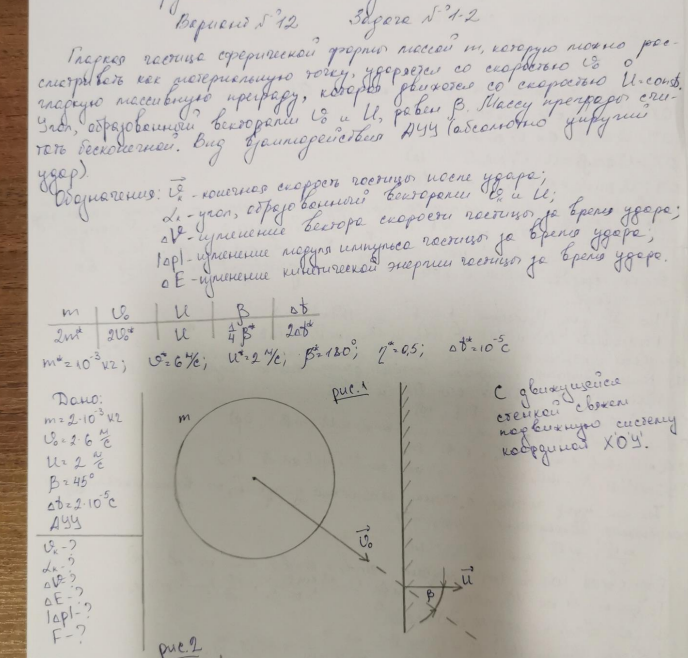 Вариант №12 Задача №1-2
Гладкая частица сферической формы массой m, которую можно рас-
сматривать как материальную точку, ударяется со скоростью v₀ о
гладкую массивную преграду, которая движется со скоростью U=const.
Угол, образованный векторами v₀ и U, равен β. Массу преграды счи-
тать бесконечной. Вид взаимодействия АУУ (абсолютно упругий
удар).
Обозначения: v⃗ₖ - конечная скорость частицы после удара;
αₖ - угол, образованный векторами vₖ и U;
ΔV - изменение вектора скорости частицы за время удара;
|Δp| - изменение модуля импульса частицы за время удара;
ΔE - изменение кинетической энергии частицы за время удара.
m | v₀ | U | β | Δt
2m* | 2v₀* | U | ¼β* | 2Δt*
m*=10⁻³ кг; v*=6 м/с; U*=2 м/с; β*=180°; η*=0,5; Δt*=10⁻⁵с
Дано:
m=2·10⁻³ кг
v₀=2·6 м/с
U=2 м/с
β=45°
Δt=2·10⁻⁵с
АУУ
vₖ-?
αₖ-?
ΔV-?
ΔE-?
|Δp|-?
F-?
рис.1
m
v⃗₀
U⃗
β
С движущейся
стенкой свяжем
подвижную систему
координат X'O'Y'.
рис.2